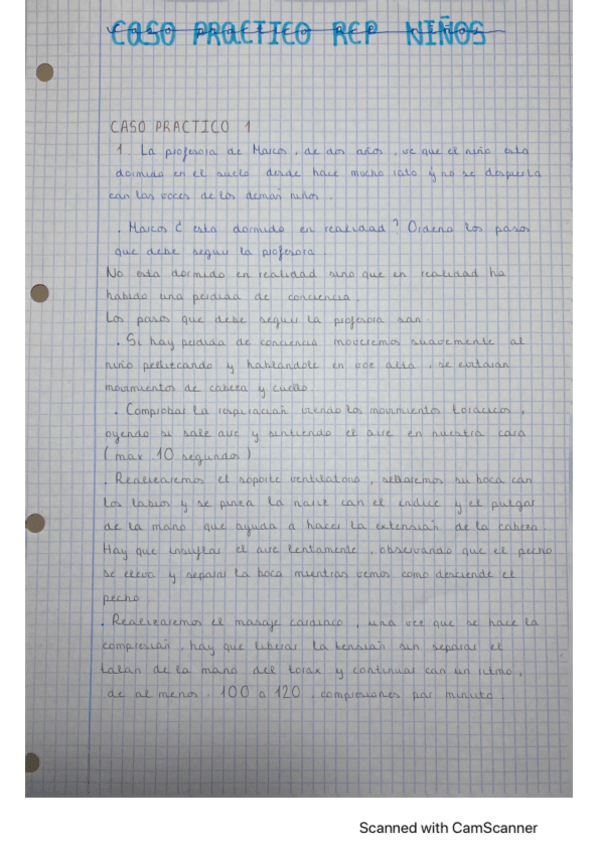 CASO PRACTICO RCP NIÑOS
CASO PRACTICO 1
1. La profesora de Marcos, de dos años, ve que el niño esta
dormido en el suelo desde hace mucho rato y no se despierta
con las voces de los demas niños.
. Marcos ¿ esta dormido en realidad? Ordena los pasos
que debe seguir la profesora.
No esta dormido en realidad sino que en realidad ha
habido una perdida de conciencia.
Los pasos que debe seguir la profesora son:
. Si hay perdida de conciencia moveremos suavemente al
niño pellizcando y hablandole en voz alta, se evitaran
movimientos de cabeza y cuello.
. Comprobar la respiración viendo los movimientos toracicos,
oyendo si sale aire y sintiendo el aire en nuestra cara
(max 10 segundos)
. Realizaremos el soporte ventilatorio, sellaremos su boca con
los labios y se pinza la nariz con el indice y el pulgar
de la mano que ayuda a hacer la extensión de la cabeza.
Hay que insuflar el aire lentamente, observando que el pecho
se eleva y separar la boca mientras vemos como desciende el
pecho
. Realizaremos el masaje cardiaco, una vez que se hace la
compresión, hay que liberar la tensión sin separar el
talon de la mano del torax y continuar con un ritmo,
de al menos. 100 a 120. compresiones por minuto.
Scanned with CamScanner